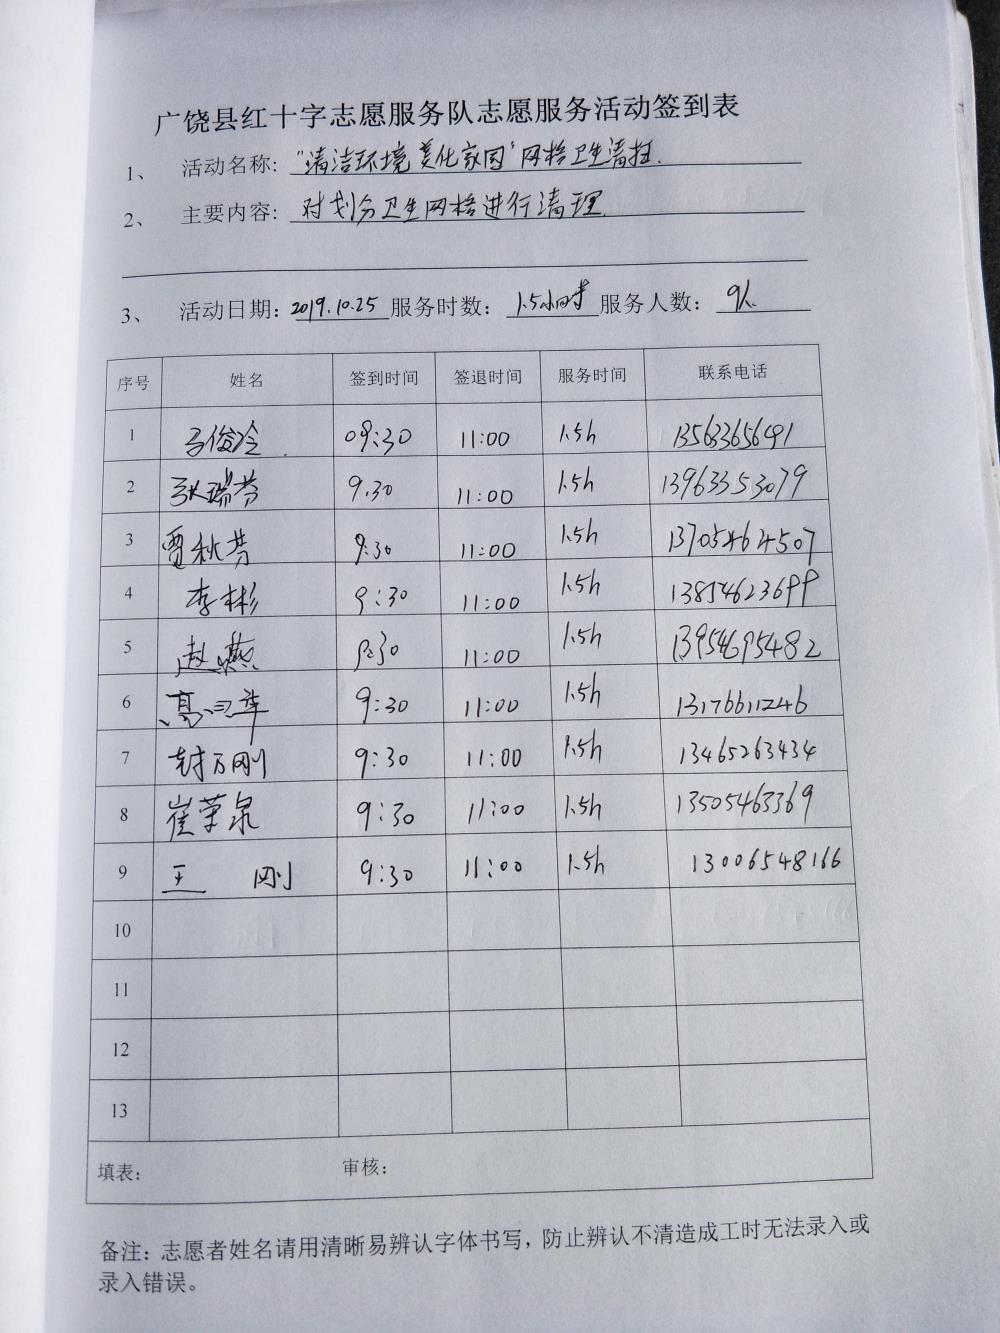 广饶县红十字志愿服务队志愿服务活动签到表
1、 活动名称: "清洁环境 美化家园"网格卫生清扫.
2、 主要内容: 对划分卫生网格进行清理.
3、 活动日期: 2019.10.25 服务时数: 1.5小时 服务人数: 9人.
序号 姓名 签到时间 签退时间 服务时间 联系电话
1 马俊冷 09:30 11:00 1.5h 13563365691
2 张瑞芬 9.30 11:00 1.5h 13963353079
3 贾秋芳 9:30 11:00 1.5h 13705464507
4 李彬 9:30 11:00 1.5h 13854623699
5 赵燕 9:30 11:00 1.5h 13954695482
6 高 9:30 11:00 1.5h 13176611246
7 封万刚 9:30 11:00 1.5h 13465263434
8 崔荣泉 9:30 11:00 1.5h 13505463369
9 王 刚 9:30 11:00 1.5h 13006548166
10
11
12
13
填表: 审核:
备注: 志愿者姓名请用清晰易辨认字体书写，防止辨认不清造成工时无法录入或
录入错误。